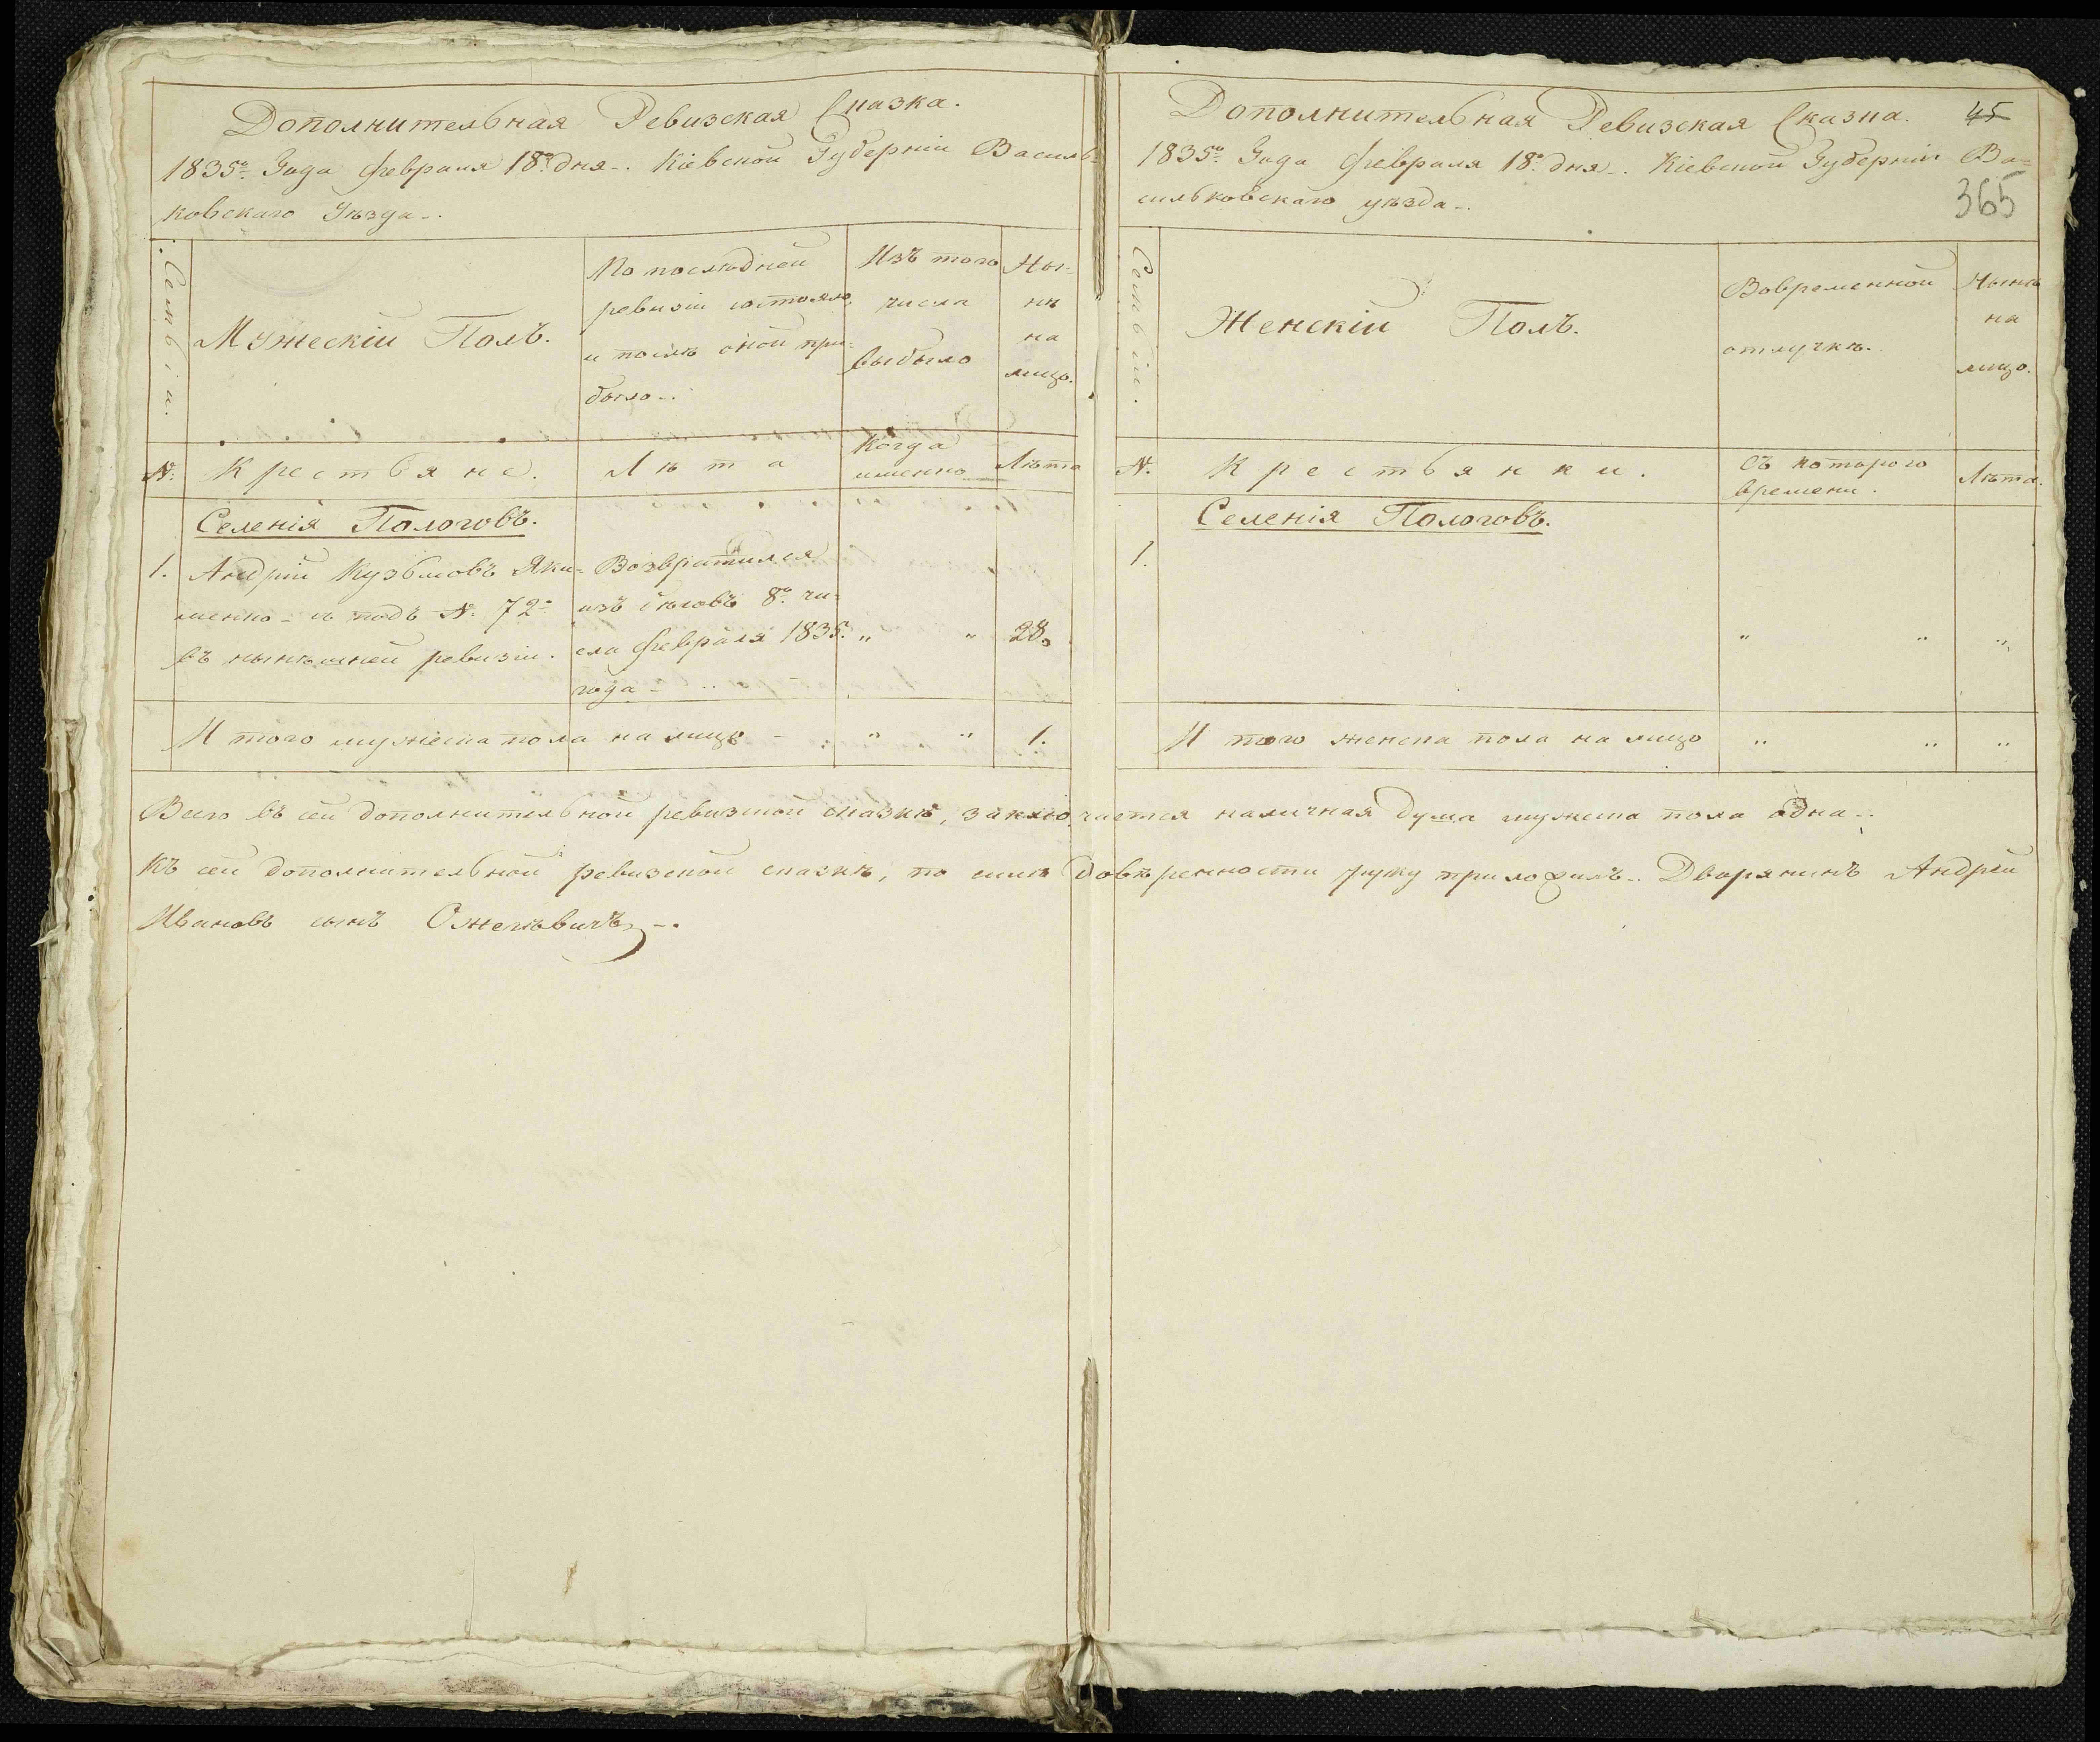 Дополнительная Ревизская Сказка.
1835го Года Февраля 18го дня. Кіевской Губерніи Василь=
ковскаго Уѣзда.
Семьіи.
Мужескій Полъ.
По послѣдней
ревизіи состояло
и послѣ оной при=
было
Изъ того
числа
выбыло
Ны=
нѣ
на
лицо.
№.
Крестьяне.
Лѣта
Когда
именно
Лѣта
Селенія Пологовъ.
1.
Андрій Кузьмовъ Яки=
менко и подъ № 72м
въ нынѣшней ревизіи.
Возвратился
изъ бѣговъ 8го чи=
сла Февраля 1835.
года
" " 28.
И того мужеска пола на лицо - " " 1.
Дополнительная Ревизская Сказка.
45
1835го Года Февраля 18го дня. Кіевской Губерніи Ва=
сильковскаго уѣзда.
365
Семьіи.
Женскій Полъ.
Вовременной
отлучкѣ.
Нынѣ
на
лицо.
№.
Крестьянки.
Съ котораго
времени.
Лѣта.
Селенія Пологовъ.
1.
" " "
И того женска пола на лицо " " "
Всего въ сей дополнительной ревизской сказкѣ, заключается наличная душа мужеска пола одна.
Къ сей дополнительной ревизской сказкѣ, по силѣ довѣренности руку приложилъ. Дворянинъ Андрей
Ивановъ сынъ